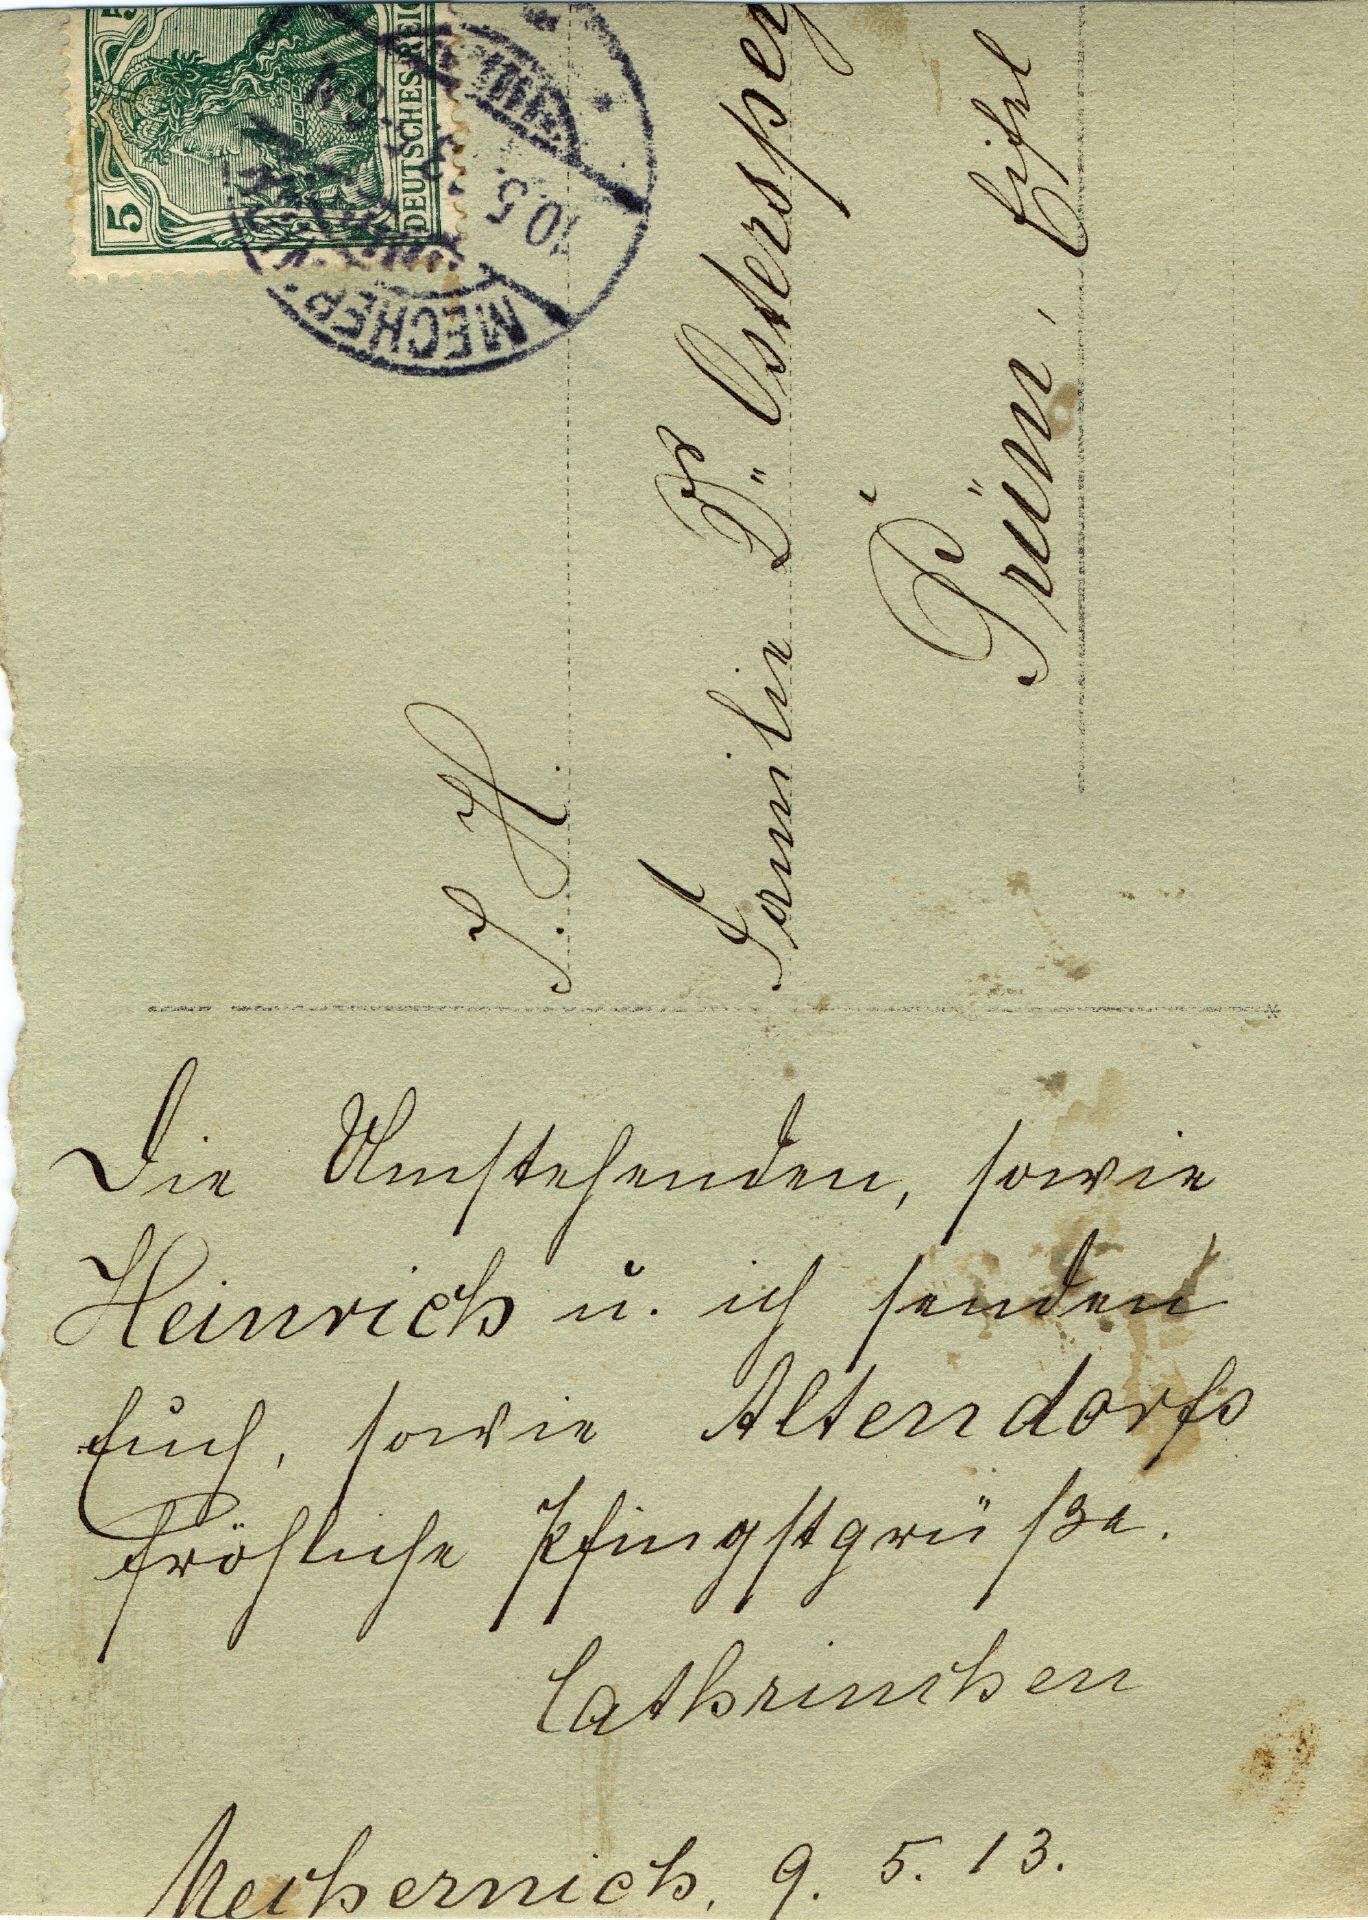 5
DEUTSCHES REIC
MECHER
10.5.
S. H.
Familie Dr. Osterspey
Prüm, Eifel
Die Umstehenden, sowie
Heinrich u. ich senden
Euch, sowie Altendorfs
fröhliche Pfingstgrüße.
Cathrinchen
Mechernich, 9. 5. 13.